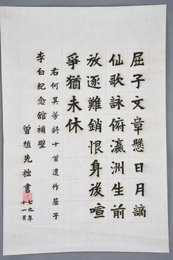 屈子文章懸日月謫
仙歌詠俯瀛洲生前
放逐難銷恨身後喧
爭猶未休
右何其芳詩十首遺作屈子
李白紀念館補壁
曾植先拙書
七九年
十一月